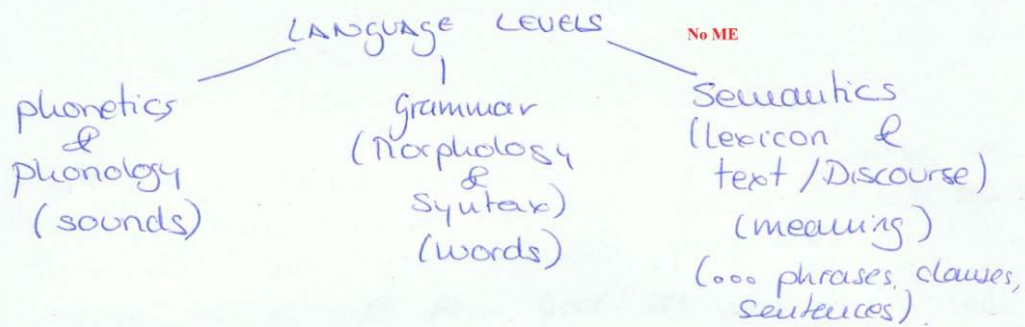 LANGUAGE LEVELS
No ME
phonetics
&
phonology
(sounds)
Grammar
(Morphology
&
Syntax)
(words)
Semantics
(lexicon &
text / Discourse)
(meaning)
(... phrases, clauses,
sentences)